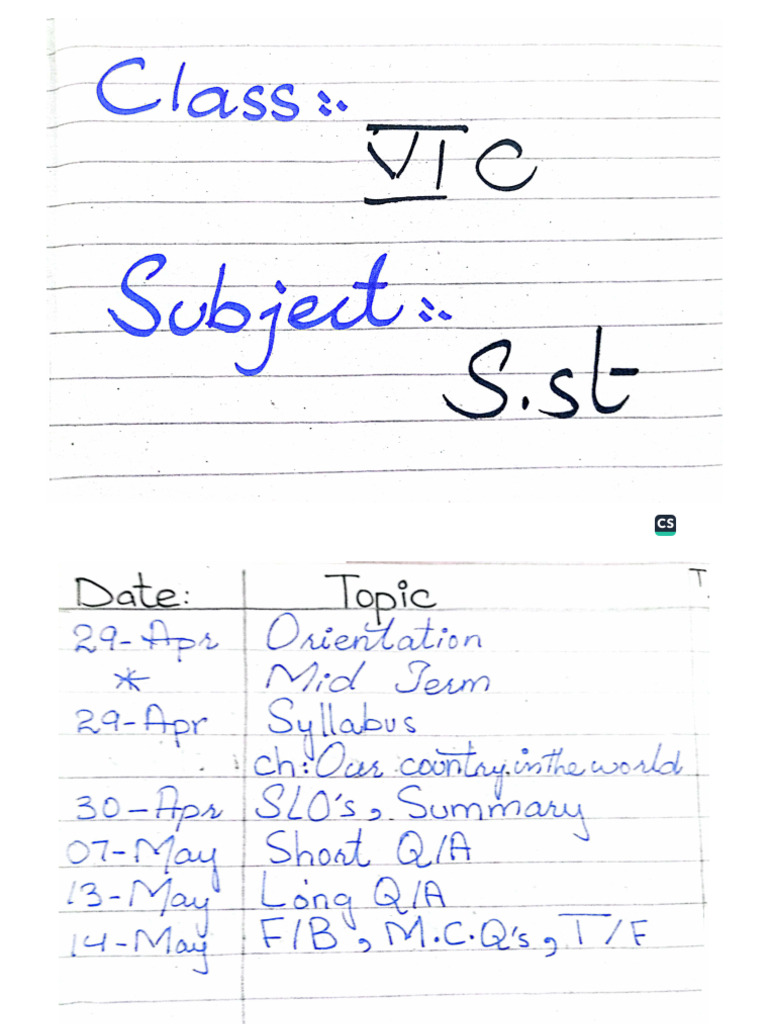 Class:.
VI C
Subject:.
S.st
CS
Date: Topic T
29-Apr Orientation
* Mid Term
29-Apr Syllabus
ch: Our country in the world
30-Apr SLO's, Summary
07-May Short Q/A
13-May Long Q/A
14-May F/B, M.C.Q's, T/F